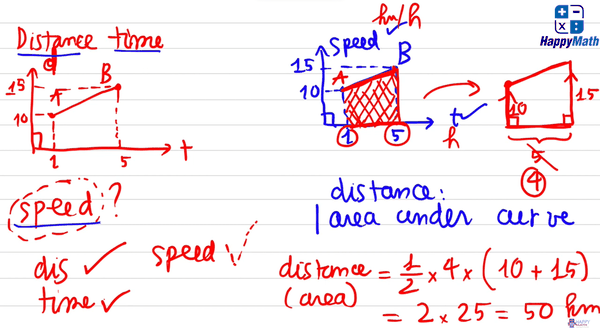 Distance time
d
15
10
A
B
1
5
t
speed ?
dis ✓
time ✓
speed ✓
km/h
speed
15
10
A
B
1
5
t
h
10
15
5
4
distance:
area under curve
distance = 1/2 × 4 × (10 + 15)
(area)
= 2 × 25 = 50 km
HappyMath